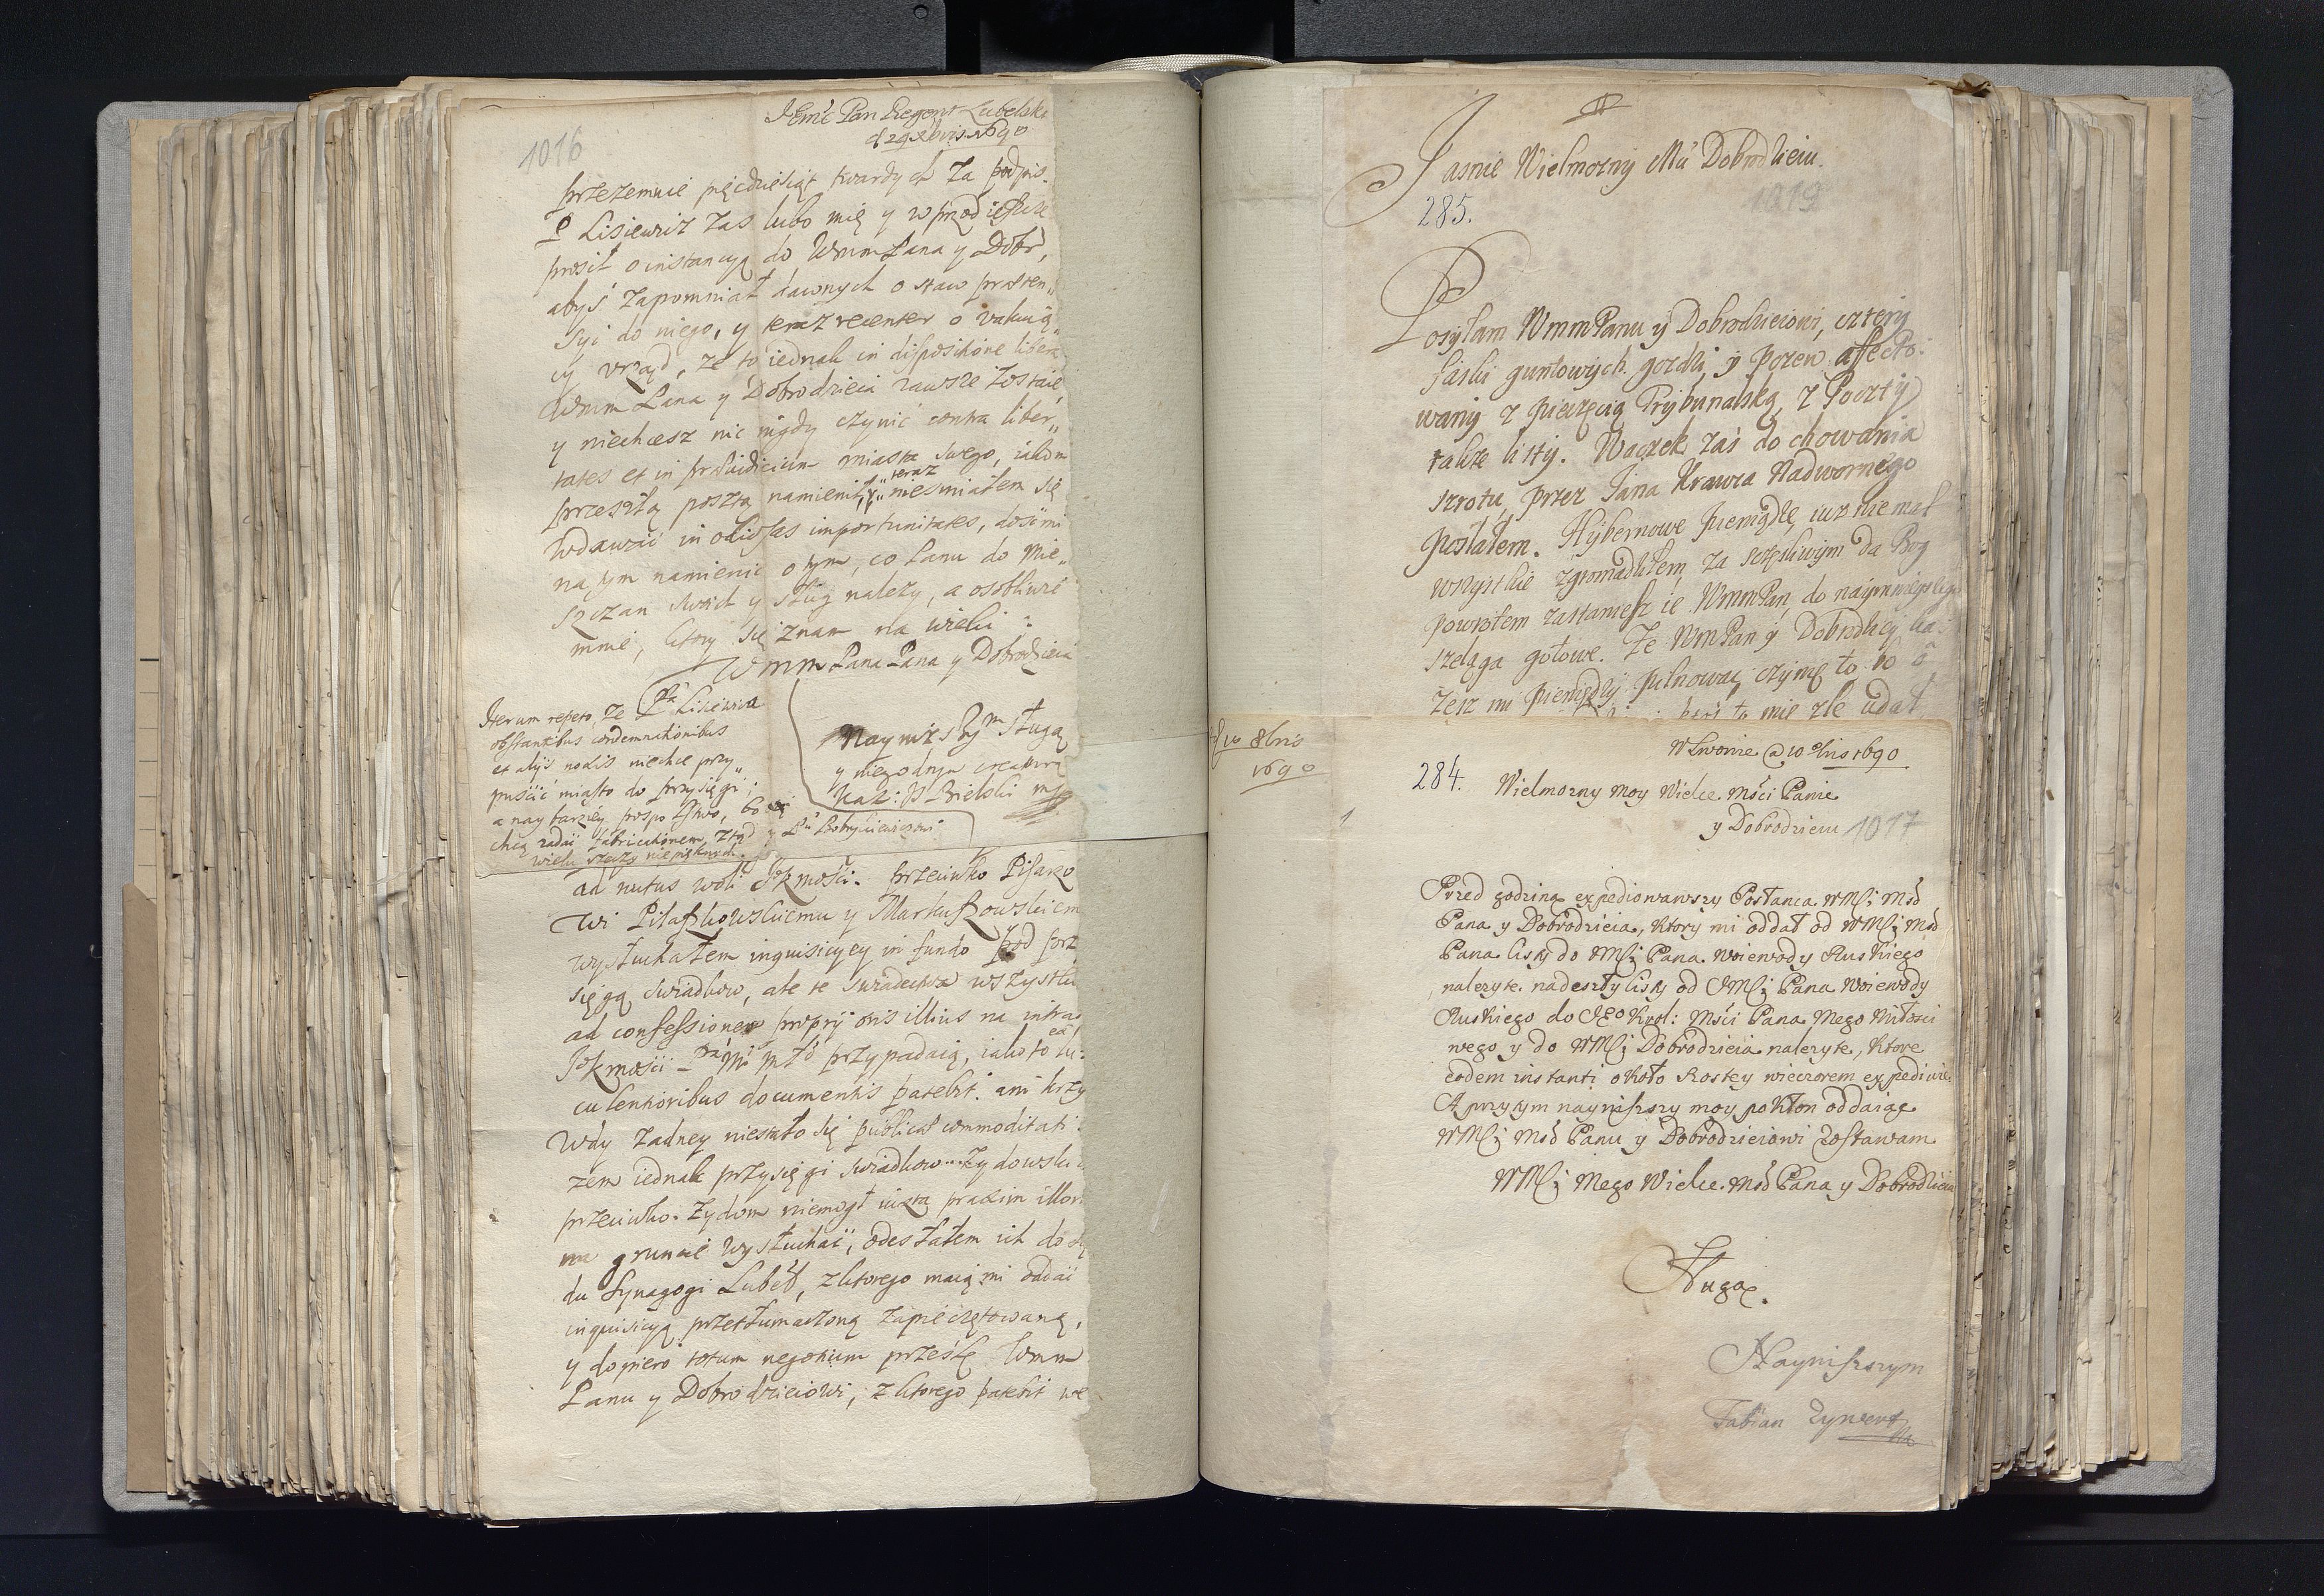 1016
JEmć Pan Regent Lubelski
d 29 Xbris 1690
przezemnie pięcdziesiąt twardych za podpis.
P Lisiewicz zas lubo mię y wprzod ieszcze
prosił o instancyą do WmmPana y Dobr,
abyś zapomniał dawnych o staw preten„
syi do niego, y teraz recenter o
cy vrząd, że to iednak in dispositione libera
Wmm Pana y Dobrodzieia zawsze zostaie
y niechcesz nic nigdy czynić contra liber„
tates et in praeiudicium miasta swego, iakom
przeszłą posztą namienił, y teraz niesmiałem się
wdawać in odiosas importunitates, dość mi
na tym namienić o tym, co Panu do mie„
szczan swoich y sług należy, a osobliwie
mnie, ktory się znam na wieki :
Wmm Pana Pana y Dobrodzieia
Nayniższym sługą
y niegodnym creaturą
Kaz: P Bielski mp
Iterum repeto, że Pa Lisiewicza
obstantibus condemnationibus
et alijs nodis niechce przy„
puścić miasto do przysięgi ;
a naybarziey pospolstwo, bo iey
chcą zadać fabricationem, ztąd y Pu
wielu rzeczy niepięknych.
ad nutus woli JKmości. przeciwko Pisarzo
wi Pilaszkowskiemu y Markuszowskiem
wysłuchałem inquisicyey in fundo pod prz
sięgą swiadkow, ale te swiadectwa wszystkie
ad confessionem proprij oris illius na intrat
JKmości przypadaią, iako to ea lu
culentioribus documentis patebit. ani krzy
wdy żadney niestało się publicae commoditati.
żem iednak przysięgi swiadkow Żydowskich
przeciwko Żydom niemogł iuxta praxim illor
na gruncie wysłuchać, odesłałem ich do są
du Synagogi Lubel, z ktorego maią mi oddać
inquisicyą przetłumaczoną zapieczętowaną,
y dopiero totum negotium prześlę Wmm
Panu y Dobrodzieiowi, z ktorego patebit we
Jasnie Wielmozny Mći Dobrodzieiu.
1019
285.
Posyłam WmmPanu y Dobrodzieiowi, cztery
faski guntowych gozdzi, y pozew affecto:
wany z pieczęcią Trybunalską, z Poczty
takze listy. Waczek zas do chowania
szrotu, przez Jana Krawca Nadwornego
posłałem. Hybernowe pieniądze, iuz niemal
wszystkie zgromadziłem, za szczesliwym da Bog
powrotem zastaniesz ie WmmPan, do naymnieyszego
szeląga gotowe. Ze WmPan y Dobrodziey ka:
zesz mi pieniędzy pilnować, czynię to, bo
mię zle udał
d 10 8bris
1690
WLwowie @ 10 8bris 1690
284.
Wielmozny Moy Wielce Mości Panie
y Dobrodzieiu
1017
Przed godziną expediowawszy Posłanca WMci Mśo
Pana y Dobrodzieia, ktory mi oddał od WMci Mśo
Pana listy do JMci Pana Woiewody Ruskiego
nalezyte. nadeszły listy od JMci Pana Woiewody
Ruskiego do Jego Krol: Mści Pana Mego Miłosci
wego y do WMci Dobrodzieia nalezyte, ktore
eodem instanti około szostey wieczorem expediuie.
A przytym nayniszszy moy pokłon oddaiąc
WMci Mśo Panu y Dobrodzieiowi zostawam
WMci Mego Wielce Mśo Pana y Dobrodzieia
Sługą.
Nayniszszym
Fabian